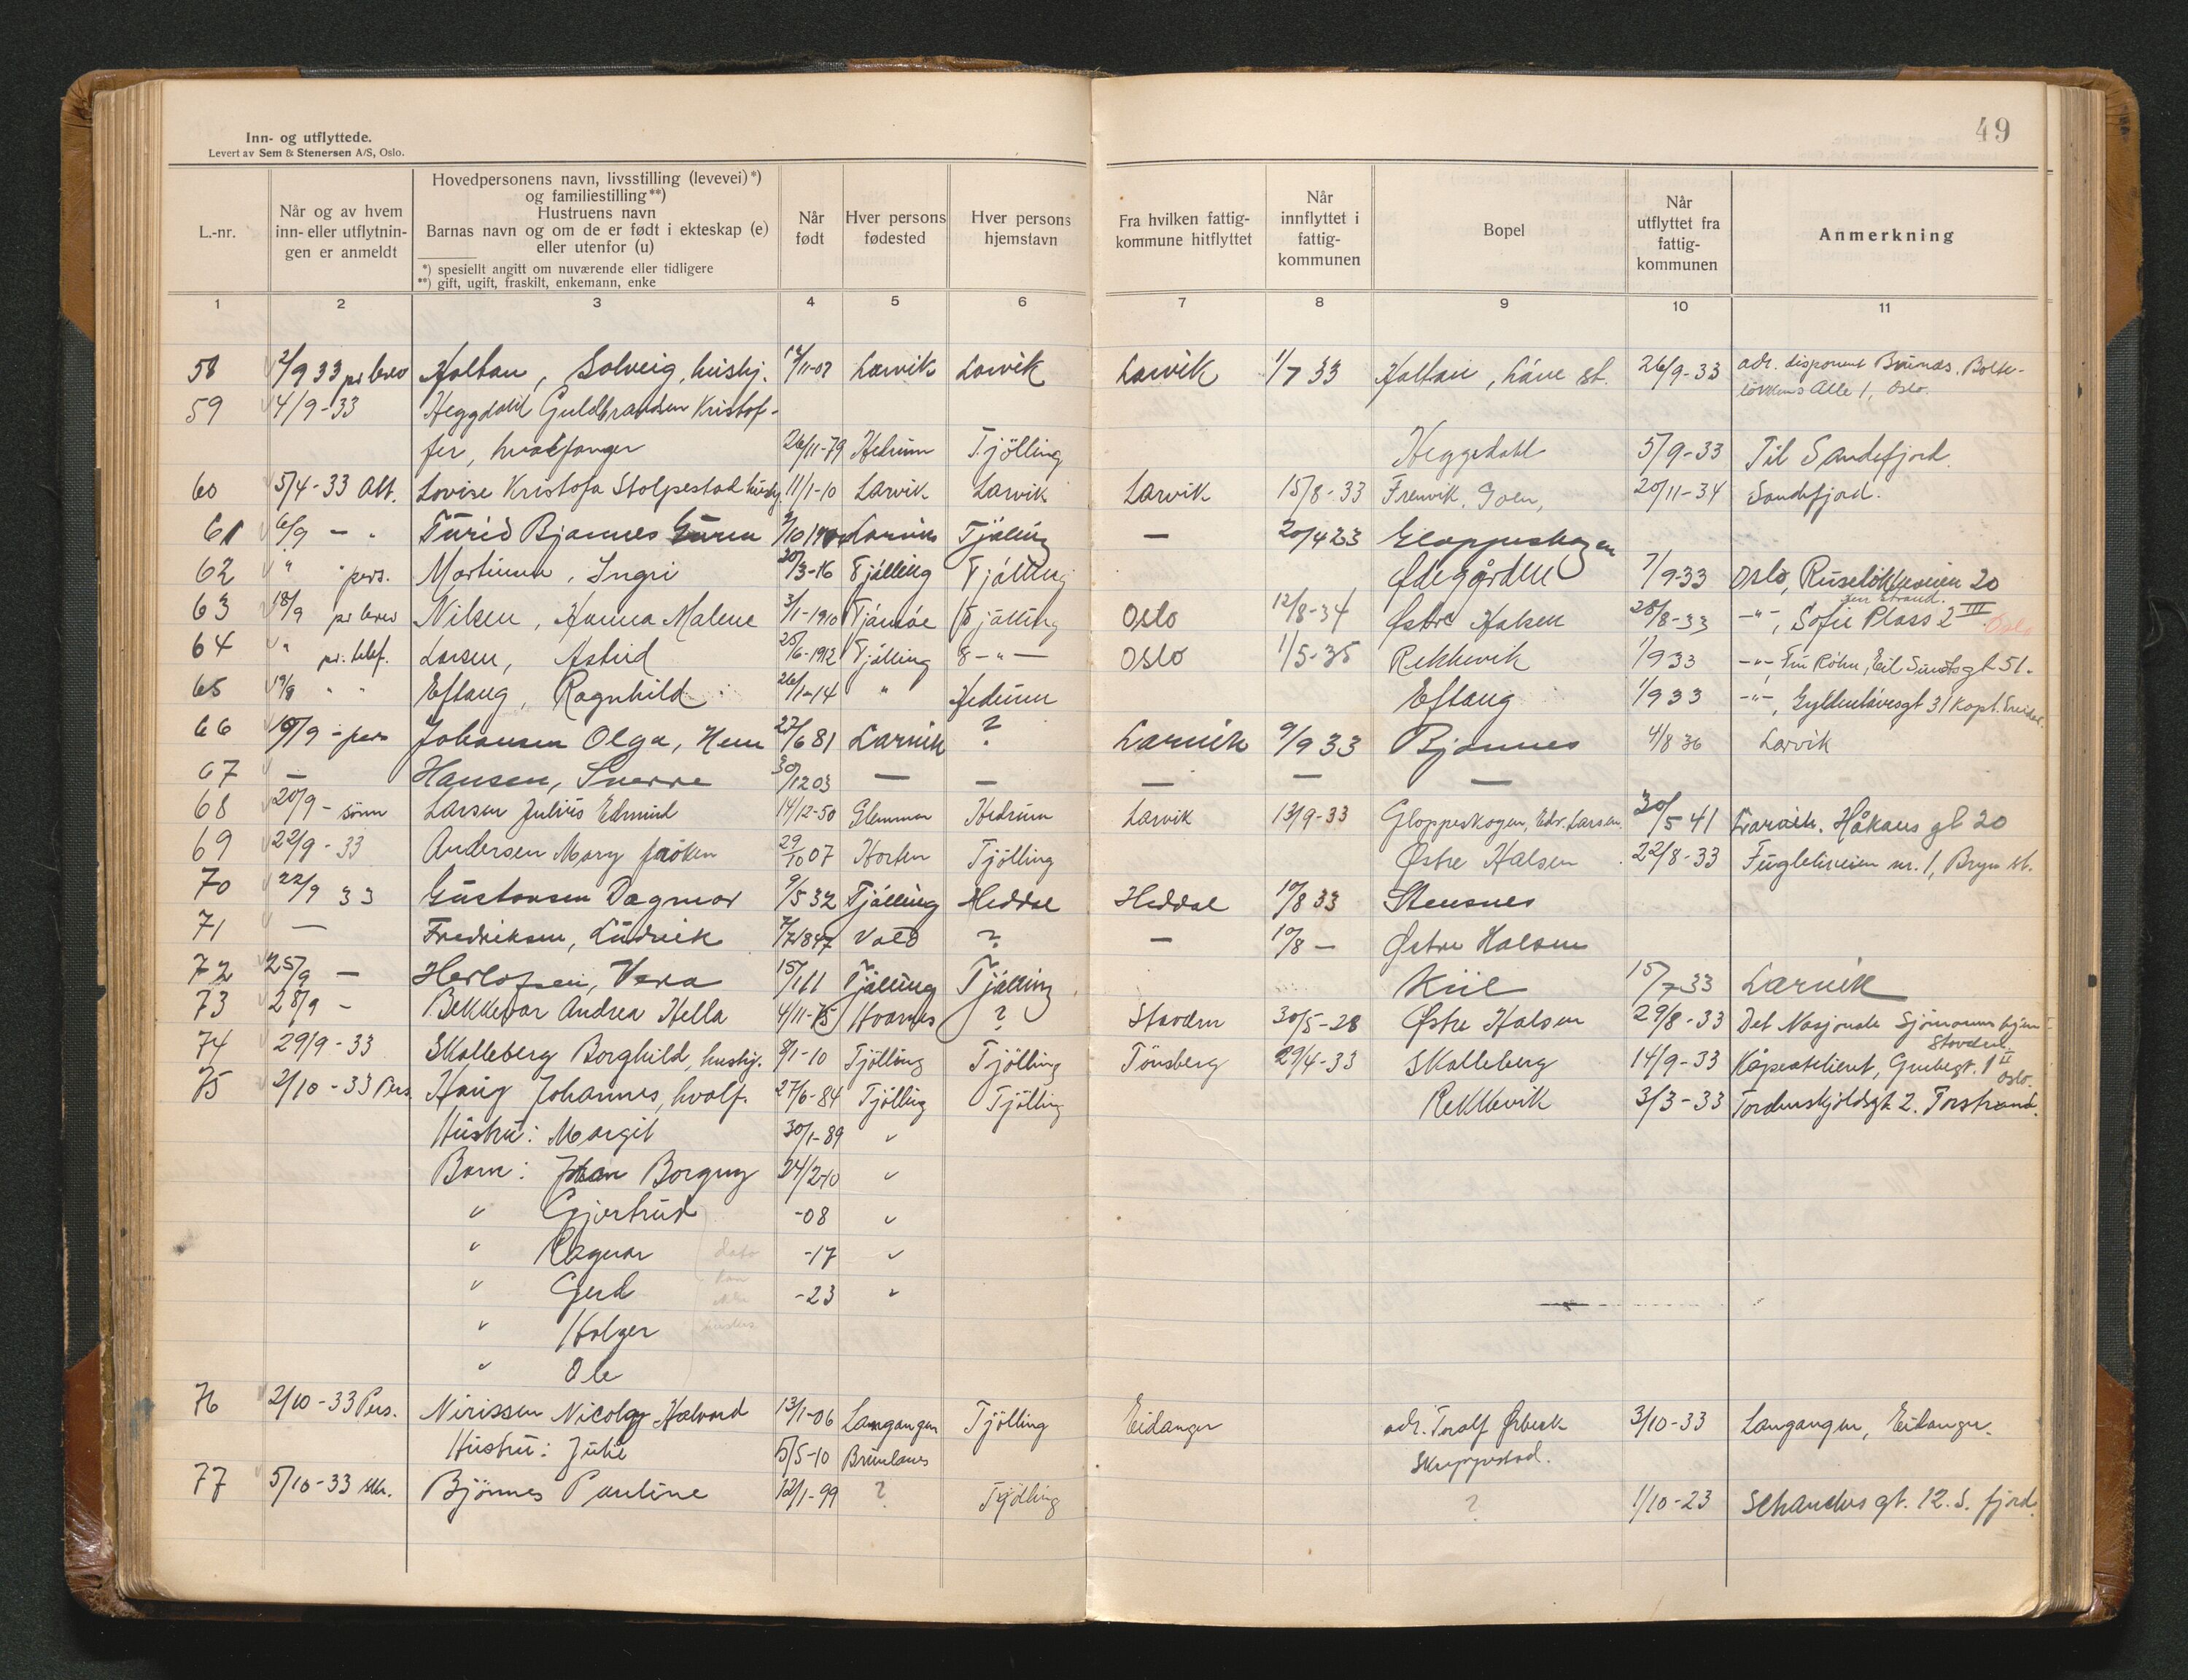 49
Inn- og utflyttede.
Levert av Sem & Stenersen A/S, Oslo.
L.-nr.
Når og av hvem inn- eller utflytnin-gen er anmeldt
Hovedpersonens navn, livsstilling (levevei)*)
og familiestilling**)
Hustruens navn
Barnas navn og om de er født i ekteskap (e)
eller utenfor (u)
*) spesiellt angitt om nuværende eller tidligere
**) gift, ugift, fraskilt, enkemann, enke
Når født
Hver persons fødested
Hver persons hjemstavn
Fra hvilken fattig-kommune hitflyttet
Når innflyttet i fattig-kommunen
Bopel
Når utflyttet fra fattig-kommunen
Anmerkning
1 2 3 4 5 6 7 8 9 10 11
58 2/9 33 pr brev Holtan, Solveig, hushj. /11-07 Larvik Larvik Larvik 1/7 33 Holtan, Låve st. 26/9-33 adr. disponent Bolte-
løkkens Alle 1, Oslo.
59 4/9-33 Heggdahl Guldbrandsen Kristof-
fer, hvalfanger 26/11-79 Hedrum Tjølling Heggdahl 5/9-33 Til Sandefjord.
60 5/4-33 Att. Lovise Kristofa Stolpestad hushj. 11/1-10 Larvik Larvik Larvik 15/8-33 Frenvik, Goen, 20/11-34 Sandefjord.
61 6/9 - " Turid Bjønnes Larvik Tjølling — 20/4 23 Gloppeskogen
62 " " pers. Martinsen, Ingri 20/3-16 Tjølling Tjølling Ødegården 7/9-33 Oslo, Ruseløkkveien 20
63 18/9 pr brev Nilsen, Hanna Malene 3/1-1910 Tjømøe Tjølling Oslo 12/8-34 Østre Halsen 28/8-33 -"-, Sofie Plass 2 III Oslo
64 " pr. telef. Larsen, Astrid 28/6-1912 Tjølling -"- Oslo 1/5-35 Rekkevik 1/9 33 -"- Fru Röhn, Eil. Sundtsgt 51.
65 19/9 " " Eftang, Ragnhild 26/1-14 " Hedrum Eftang 1/9 33 -"-, Gyldenløvesgt 31 Kapt.
66 19/9 - pers Johansen Olga, 27/6 81 Larvik ? Larvik 9/9 33 Bjønnes 4/8 36 Larvik
67 — Hansen, Sverre 30/12 03 — — — — —
68 20/9 - sønn Larsen Julius Edmund 14/12-50 Glemmen Hedrum Larvik 13/9-33 Gloppeskogen, Edv. Larsen. 30/5 41 Larvik. Håkons gt 20
69 22/9-33 Andersen Mary frøken 29/10 07 Horten Tjølling Østre Halsen 22/8-33 Fugleliveien nr. 1, Bryn st.
70 22/9 33 Gustavsen Dagmar 9/5 32 Tjølling Heddal Heddal 10/8 33 Stensnes
71 — Fredriksen, Ludvik 7/7 1847 Vold ? — 10/8 — Østre Halsen
72 25/9 — Herlofsen, Vera 15/1 11 Tjølling Tjølling Kiil 15/7 33 Larvik
73 28/9 - Bekkevar Andrea Hella 4/11-75 Hvarnes ? Stavern 30/5-28 Østre Halsen 29/8-33 Det Nasjonale Sjömannshjem
Stavern.
74 29/9-33 Skalleberg Borghild, hushj. 8/1-10 Tjölling Tjölling Tönsberg 29/4-33 Skalleberg 14/9-33 Kåpeatelieret, Grubegt. 1 II
Oslo.
75 2/10-33 Pers. Haug Johannes, hvalf. 27/6-84 Tjölling Tjölling Rekkevik 3/3-33 Tordenskjoldsgt 2. Torstrand.
Hustru: Margit 30/1-89 "
Barn: Johan Borgny 24/2-10 "
" Gjertrud -08 "
" Ragnar -17 "
dato
kan
ikke
" Gerd -23 "
" Holger
" Ole
76 2/10-33 Pers. Nirissen Nicolay Halvard 13/1-06 Langangen Tjölling Eidanger adr. Toralf Ørbeck 3/10-33 Langangen, Eidanger.
Hustru: Julie 5/5-10 Brunlanes Skreppestad.
77 5/10-33 skr. Bjönnes Pauline 12/1-99 ? Tjölling ? 1/10-23 Schanches gt. 12. S. fjord.